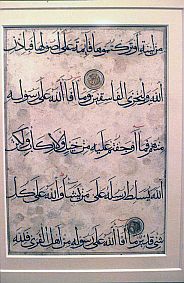 من لينة او تركتموها قائمة على اصولها فباذن
الله وليخزى الفاسقين وما افاء الله على رسوله
منهم فما اوجفتم عليه من خيل ولا ركاب ولكن
الله يسلط رسله على من يشاء والله على كل
شئ قدير ما افاء الله على رسوله من اهل القرى فلله